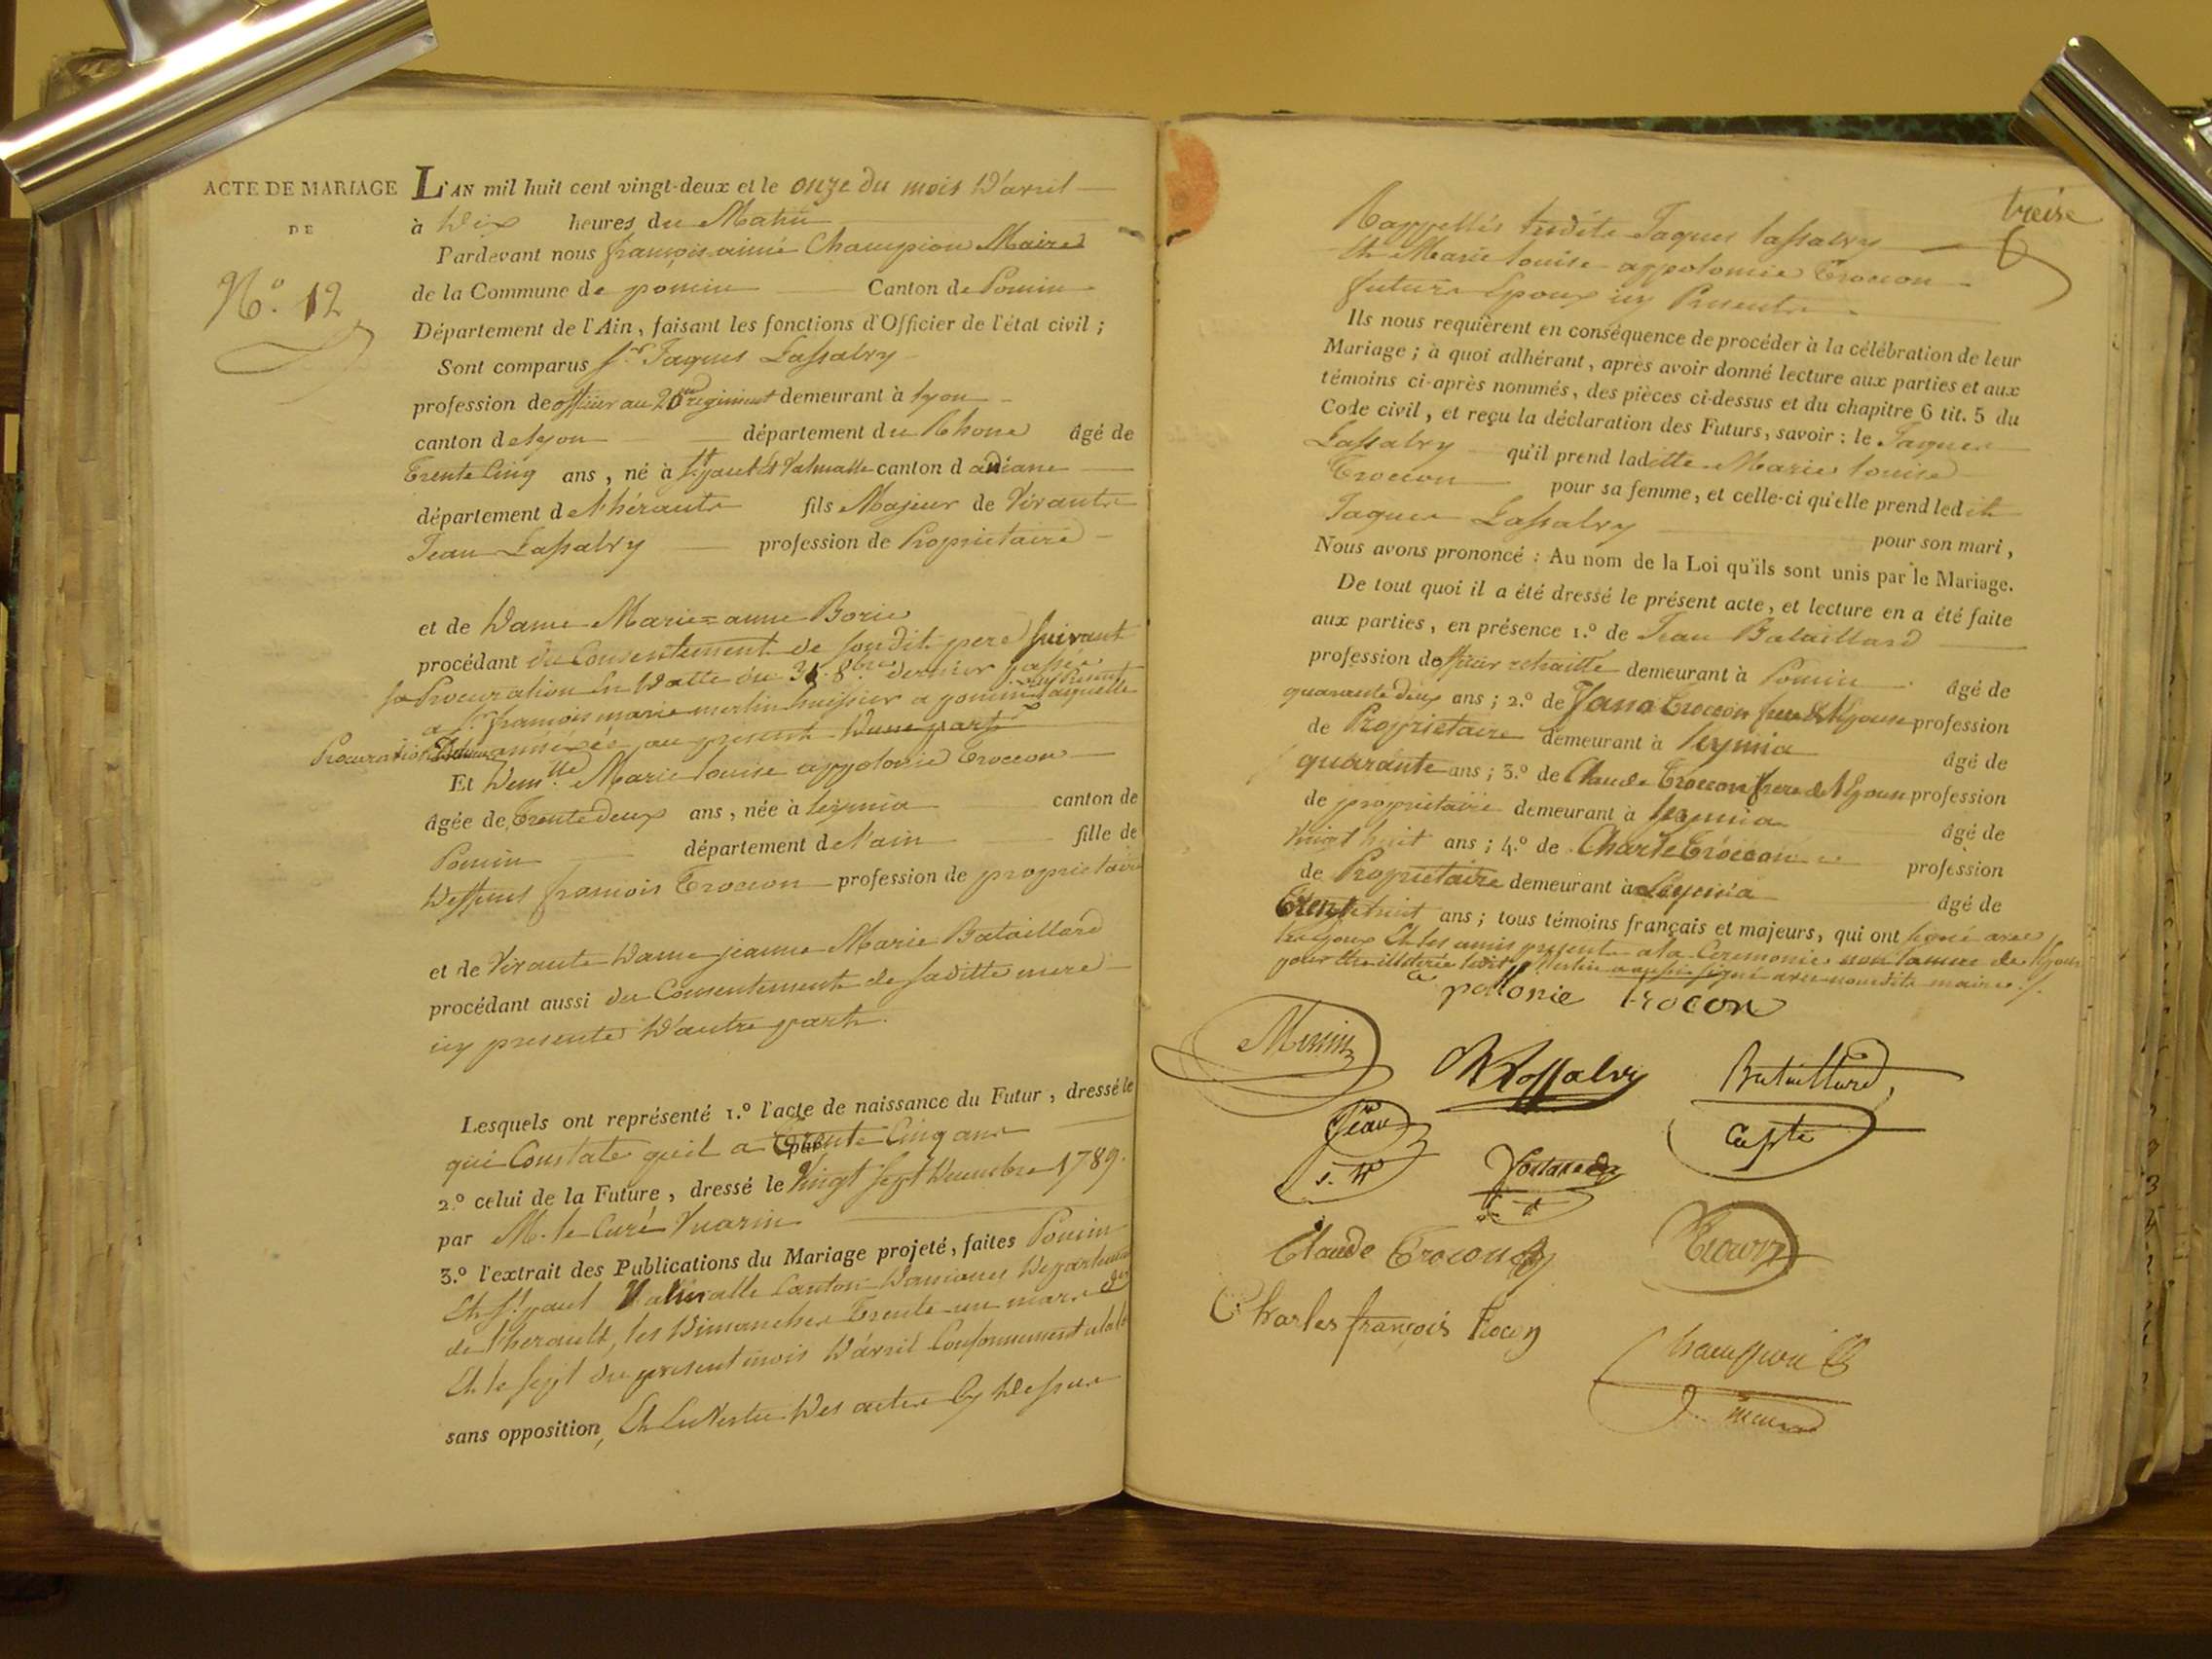 ACTE DE MARIAGE
DE
N.o 12
L'AN mil huit cent vingt-deux et le onze du mois D'avril
à Dix heures du Matin
Pardevant nous françois aimé Champion Maire
de la Commune de poncin Canton de Poncin
Département de l'Ain, faisant les fonctions d'Officier de l'état civil;
Sont comparus Sr. Jaques Lassalvy
profession de officier au regiment demeurant à lyon
canton de lyon département du Rhone âgé de
Trente Cinq ans, né à St. paul Et Valmalle canton d aniane
département de l'héraute fils Majeur de Vivante
Jean Lassalvy profession de Propriétaire
et de Dame Marie=anne Borie
procédant du Consentement de Sondit pere Suivant
sa Procuration En Datte du 8.bre dernier passée
a Sr. francois marie merlin huissier a poncin laquelle
Procuration annéxée au present D'une part
Et Dem.lle Marie louise appolonie Troccon
âgée de Trente Deux ans, née à leymia canton de
Poncin département de l'ain fille de
Deffunt francois Troccon profession de proprietaire
et de Vivante Dame jeanne Marie Bataillard
procédant aussi du Consentement de saditte mere
icy presente D'autre part.
Lesquels ont représenté 1.o l'acte de naissance du Futur, dressé le
qui Constate qu'il a Trente Cinq ans
par
2.o celui de la Future, dressé le Vingt Sept Decembre 1789.
par M. le Curé Vuarin
3.o l'extrait des Publications du Mariage projeté, faites Poncin
Et St. paul Valmalle Canton Daniane Departement
de l'herault, les Dimanches Trente un mars
Et le Sept du present mois D'avril Conformement a la loi
sans opposition, Et En Vertu Des actes Cy Dessus
treise
Rappellés lesdits Jaques lassalvy
Et Marie louise appolonie Troccon
futurs Epoux icy Presents
Ils nous requièrent en conséquence de procéder à la célébration de leur
Mariage; à quoi adhérant, après avoir donné lecture aux parties et aux
témoins ci-après nommés, des pièces ci-dessus et du chapitre 6 tit. 5 du
Code civil, et reçu la déclaration des Futurs, savoir: le Jaques
Lassalvy qu'il prend laditte Marie louise
Troccon pour sa femme, et celle-ci qu'elle prend ledit
Jaques Lassalvy pour son mari,
Nous avons prononcé: Au nom de la Loi qu'ils sont unis par le Mariage.
De tout quoi il a été dressé le présent acte, et lecture en a été faite
aux parties, en présence 1.o de Jean Bataillard
profession d officier retraitté demeurant à Poncin âgé de
quarante deux ans; 2.o de Troccon frere de l'Epouse profession
de Propriétaire demeurant à leymia âgé de
quarante ans; 3.o de Claude Troccon frere de l'Epouse profession
de propriétaire demeurant à leymia âgé de
Vingt huit ans; 4.o de Charle Troccon profession
de Propriétaire demeurant à Leymia âgé de
Trente huit ans; tous témoins français et majeurs, qui ont signé avec
les Epoux Et les amis present a la Ceremonie non la mere de l'Epouse
pour Etre illiterée ledit Sr. Merlin a aussi signé avec nousdits maire./.
apollonie trocon
Lassalvy
Bataillard,
Capte
Claude Trocon
Charles françois trocon
Champion
maire